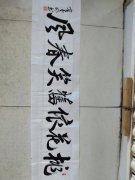 桃花依舊笑春風